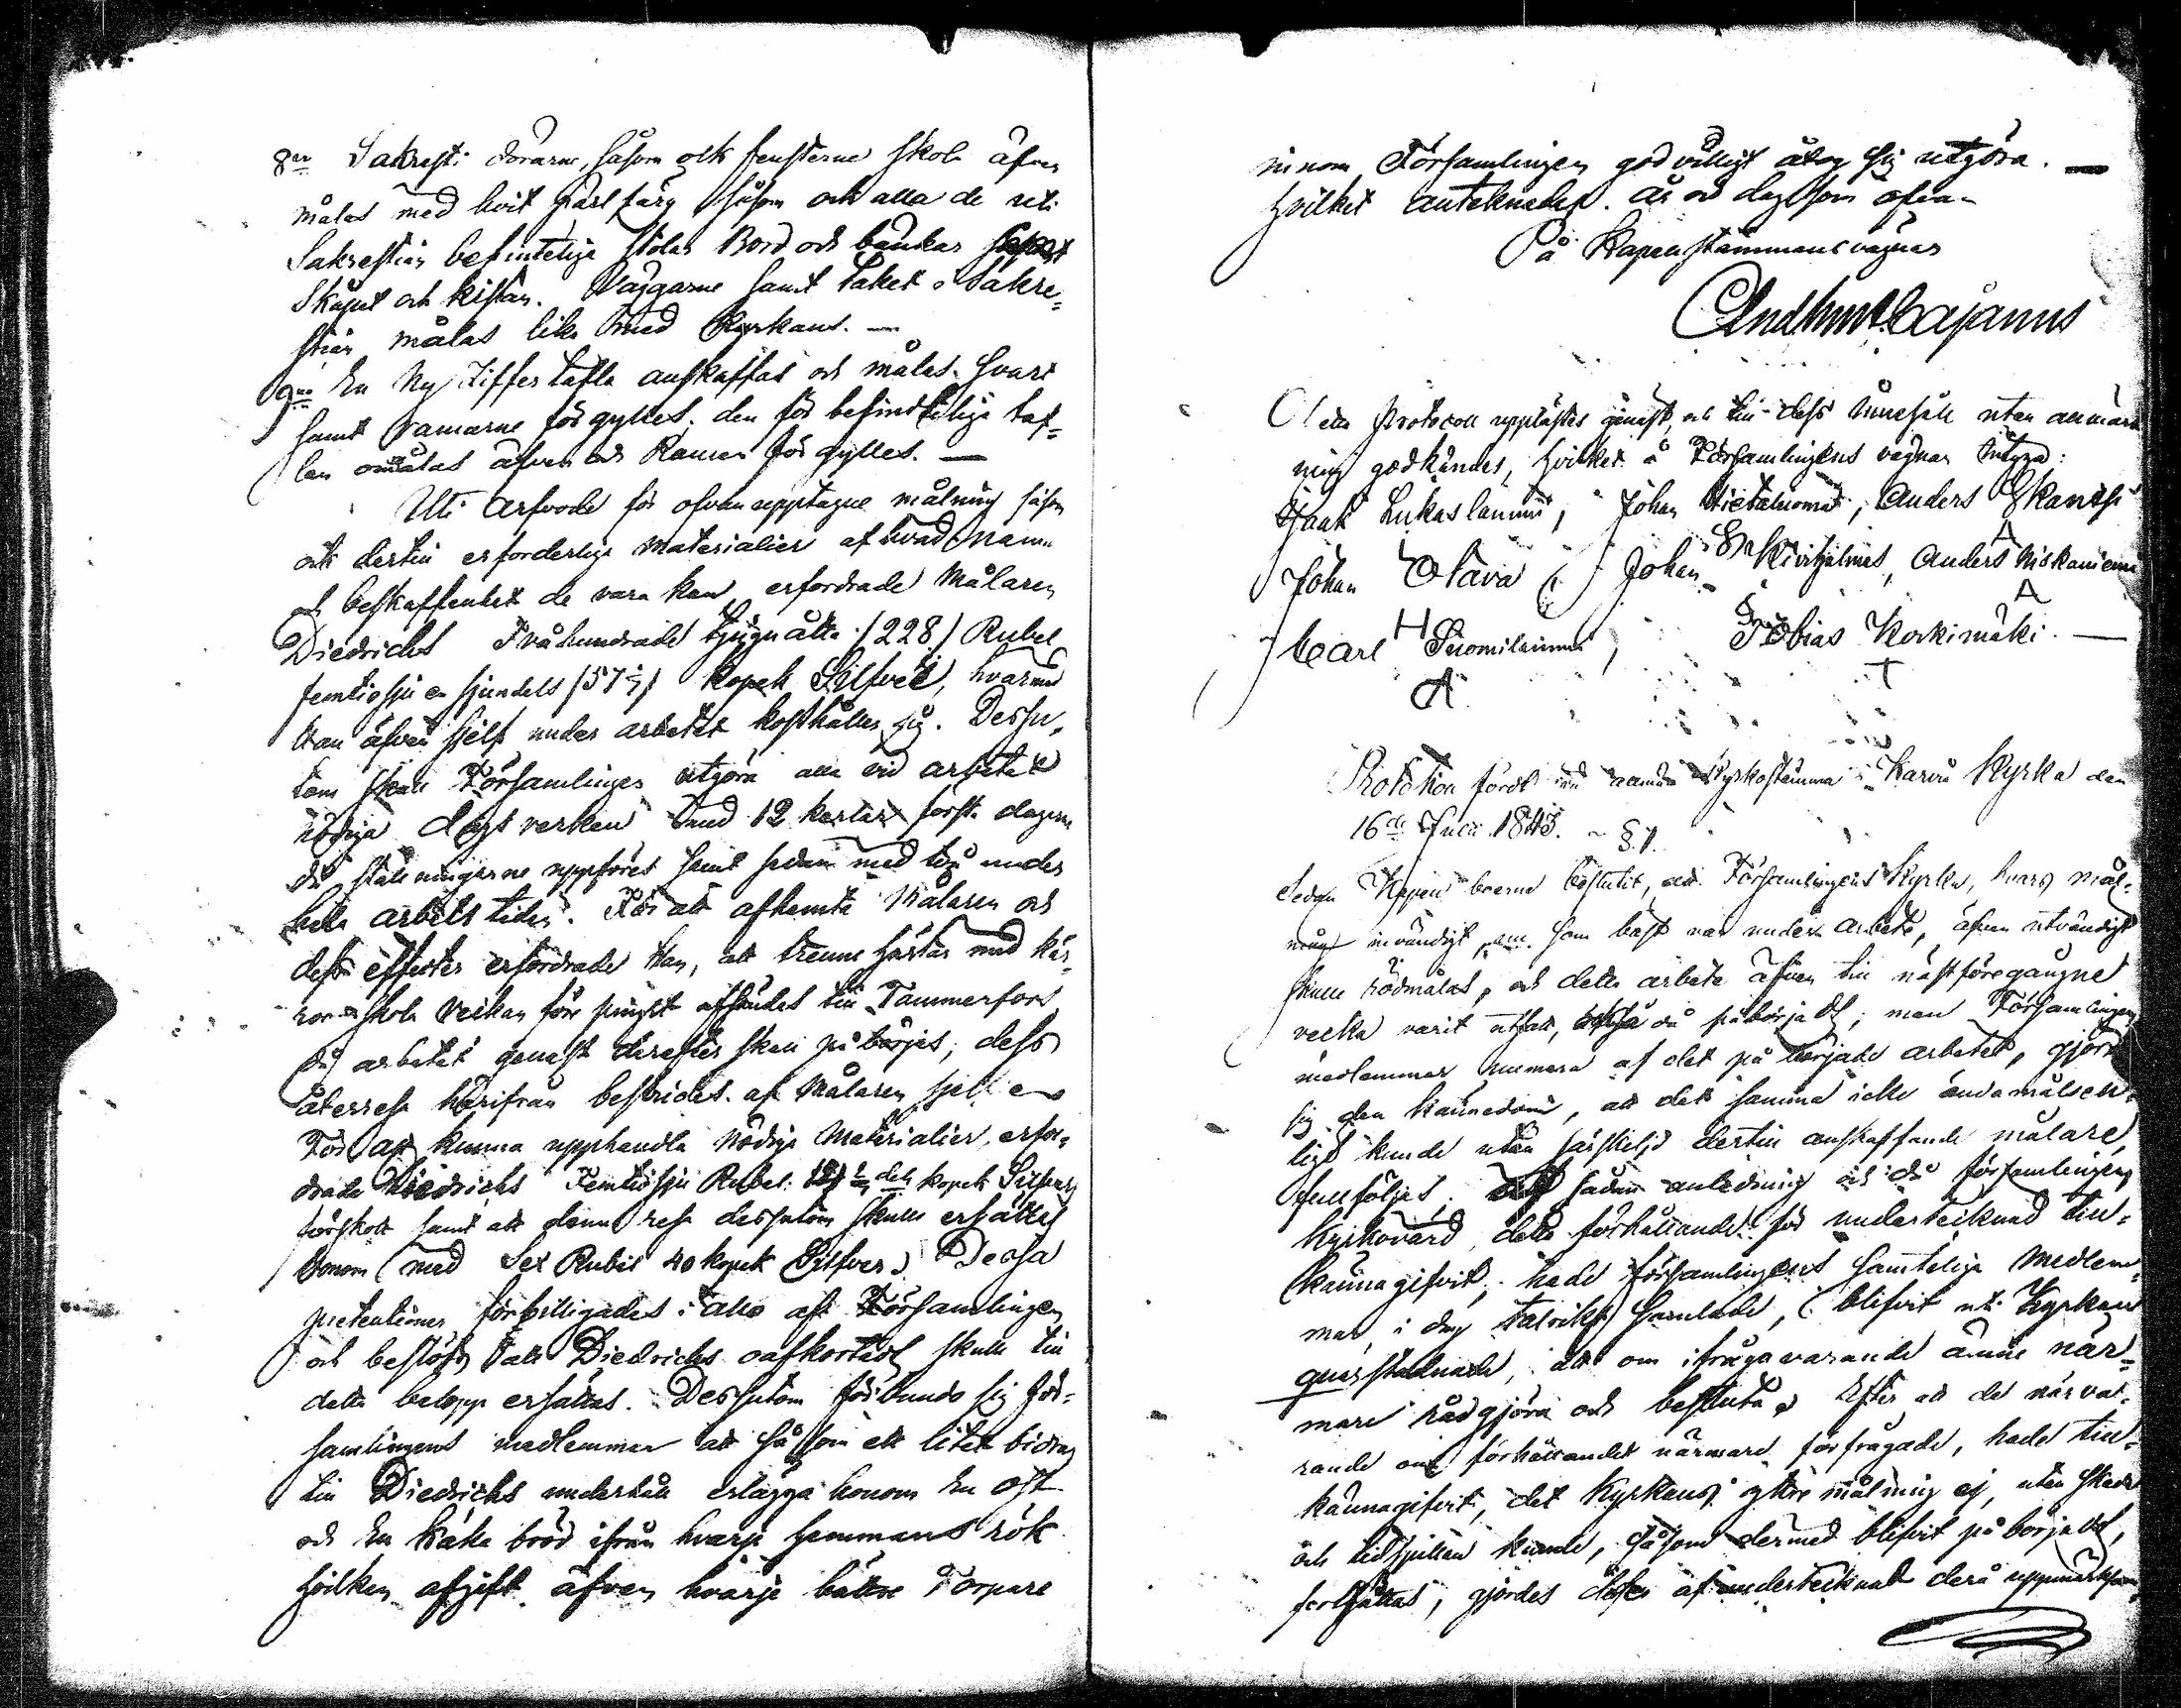 8:o Sakresti dörarne, såsom ock fensterne skola äfven
målas med hvit Perl färg såsom och alla de uti
Sakrestian befinteliga stolar Bord och bänkar
Skåpet och kistan. Väggarne samt taket i Sakre=
stian målas lika med Kyrkans. —
9:o En Ny Ziffer tafla anskaffas och målas svart
samt ramarne förgylles. den för befindtelige taf=
lan ommålas äfven och Ramen förgylles. —
Uti Arfvode för ofvanupptagne målning såsom
och dertill erforderlige materialier af hvad namn
och beskaffenhet de vara kan erfordrade Målaren
Diedrichs Tvåhundrade tjuguåtta /228/ Rubel
femtiosju en sjundels /57 1/7/ kopek Silfver, hvarmed
Han äfven sjelf under arbetet kosthåller sig. Dessu=
tom skall Församlingen utgöra alla vid arbetet
nödiga dagsverken med 12 karlar första dagarne
då ställningarne uppföres samt sedan med två under
hela arbets tiden. För att afhemta Målaren och
dess effecter erfordrade Han, att trenne hästar med kär=
ror skola veckan före pingst afsändas till Tammerfors
då arbetet genast derefter skall på börjas; dess
återresa härifrån bestrides af Målaren sjelf
För att kunna upphandla nödiga Materialier, erfor=
drade Diedrichs Femtiosju Rubel kopek Silfver
förskott samt att denna resa dessutom skulle ersättas
honom med Sex Rubel 40 kopek Silfver. Dessa
pretentioner förbilligades i allo af Församlingen
och beslöts att Diedrichs oafkortadt skulle till
detta belopp ersättas. Dessutom förbundo sig För=
samlingens medlemmar att såsom ett litet bidrag
till Diedrichs underhåll erlägga honom En ost
och En kaka bröd ifrån hvarje hemmans rök
hvilken afgift äfven hvarje bättre Torpare
innom Församlingen godvilligt åtog sig utgöra. —
hvilket antecknades. År och dag som ofvan
På Kapellstämmans vägnar
And. Cajanus
Detta Protocoll upplästes genast, och till dess innehåll utan anmärk
ning godkändes, hvilket å Församlingens vägnar intyga:
Isaak Lukaslammi, Johan Hietaluoma, Anders Skantsi
Johan Olava Johan Kivihalmes, Anders Niskaniemi
Carl Suomilammi, Tobias Korkimäki. —
Protokoll fördt vid allmän Kyrkostämma i Karvia Kyrka den
16de Juli 1843. §. 1.
Sedan Kapell boerne beslutit, att Församlingens Kyrka, hvars mål=
ning invändigt, nu som bäst var under arbete, äfven utvändigt
skulle rödmålas, och detta arbete äfven till nästföregångne
vecka varit utsatt, då påbörjadt; men Församlingens
medlemmar numera af det på började arbetet, gjort
sig den kännedom, att det samma icke ändamålsen=
ligt kunde utan särskild dertill anskaffande målare,
fullföljas; sådan anledning och då församlingens
Kyrkovärd detta förhållande för undertecknad till=
kännagifvit, hade församlingens samtelige Medlem=
mar, i dag talrikt samlade, blifvit uti Kyrkan
quarstadnade, att om ifrågavarande ämne när=
mare rådgjöra och besluta. Efter att de närva=
rande om förhållandet närmare förfrågade, hade till=
kännagifvit, det Kyrkans yttre målning ej, utan skada
och tidspillan kunde, såsom dermed blifvit på börjadt,
fortsättas, gjordes af undertecknad derå uppmärksam